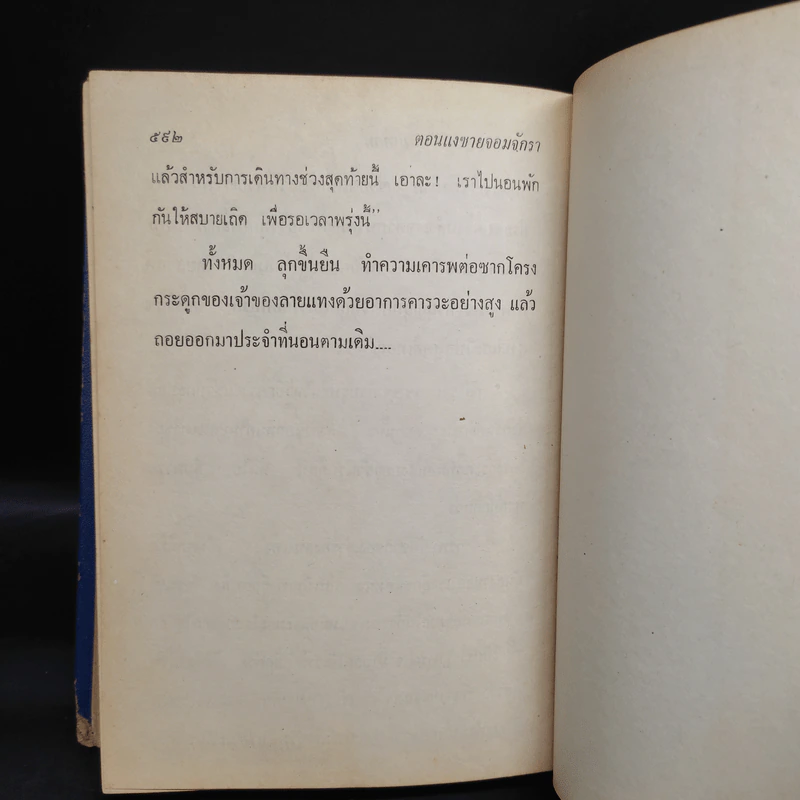 ๕๙๒ ตอนแงซายจอมจักรา
แล้วสำหรับการเดินทางช่วงสุดท้ายนี้ เอาละ! เราไปนอนพัก
กันให้สบายเถิด เพื่อรอเวลาพรุ่งนี้”
ทั้งหมด ลุกขึ้นยืน ทำความเคารพต่อซากโครง
กระดูกของเจ้าของลายแทงด้วยอาการคารวะอย่างสูง แล้ว
ถอยออกมาประจำที่นอนตามเดิม....